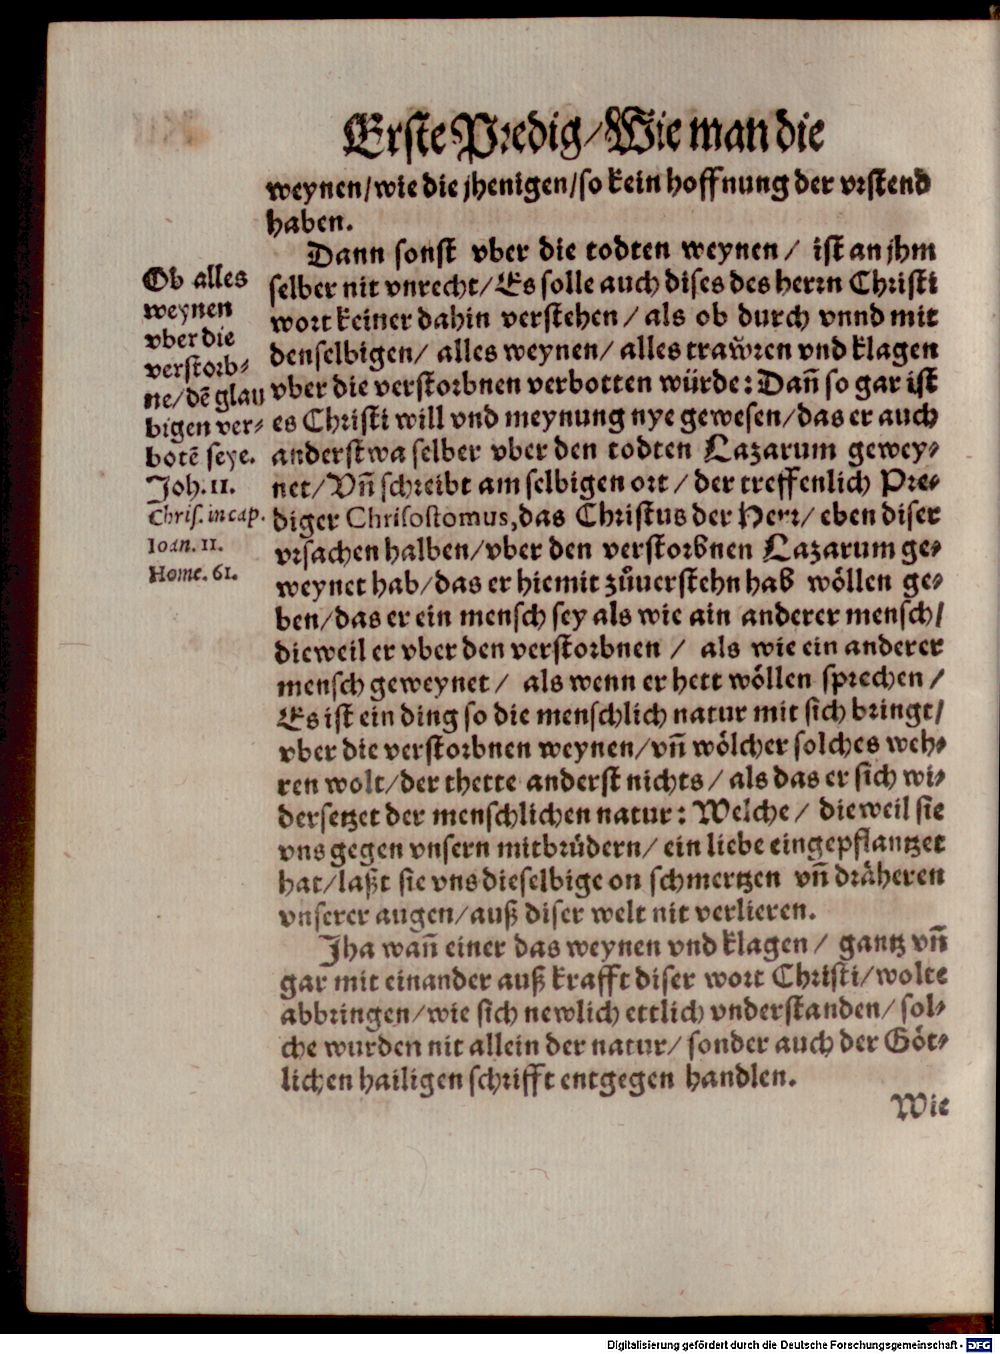 Erste Predig/Wie man die
weynen/wie die jhenigen/so kein hoffnung der vrstend
haben.
Dann sonst vber die todten weynen/ ist an jhm
selber nit vnrecht/Es solle auch dises des herrn Christi
wort keiner dahin verstehen/als ob durch vnnd mit
denselbigen/ alles weynen/ alles trawͦren vnd klagen
vber die verstorbnen verbotten würde: Dañ so gar ist
es Christi will vnd meynung nye gewesen/das er auch
anderstwa selber vber den todten Lazarum gewey-
net/Vñ schreibt am selbigen ort/der treffenlich Pre-
diger Chrisostomus,das Christus der Herr/eben diser
vrsachen halben/vber den verstorbnen Lazarum ge-
weynet hab/das er hiemit zůuerstehn hab wöllen ge-
ben/das er ein mensch sey als wie ain anderer mensch/
dieweil er vber den verstorbnen / als wie ein anderer
mensch geweynet/ als wenn er hett wöllen sprechen/
Es ist ein ding so die menschlich natur mit sich bringt/
vber die verstorbnen weynen/vñ wölcher solches weh-
ren wolt/der thette anderst nichts/als das er sich wi-
dersetzet der menschlichen natur: Welche/ dieweil sie
vns gegen vnsern mitbrüdern/ ein liebe eingepflantzet
hat/laßt sie vns dieselbige on schmertzen vñ dräheren
vnserer augen/auß diser welt nit verlieren.
Jha wañ einer das weynen vnd klagen/ gantz vñ
gar mit einander auß krafft diser wort Christi/wolte
abbringen/wie sich newlich ettlich vnderstanden/sol-
che wurden nit allein der natur/sonder auch der Göt-
lichen hailigen schrifft entgegen handlen.
Wie
Ob alles
weynen
vber die
verstorb-
ne/dẽ glau
bigen ver-
botẽ seye.
Joh.11.
Chris. in cap.
Ioan. 11.
Home. 61.
Digitalisierung gefördert durch die Deutsche Forschungsgemeinschaft - DFG